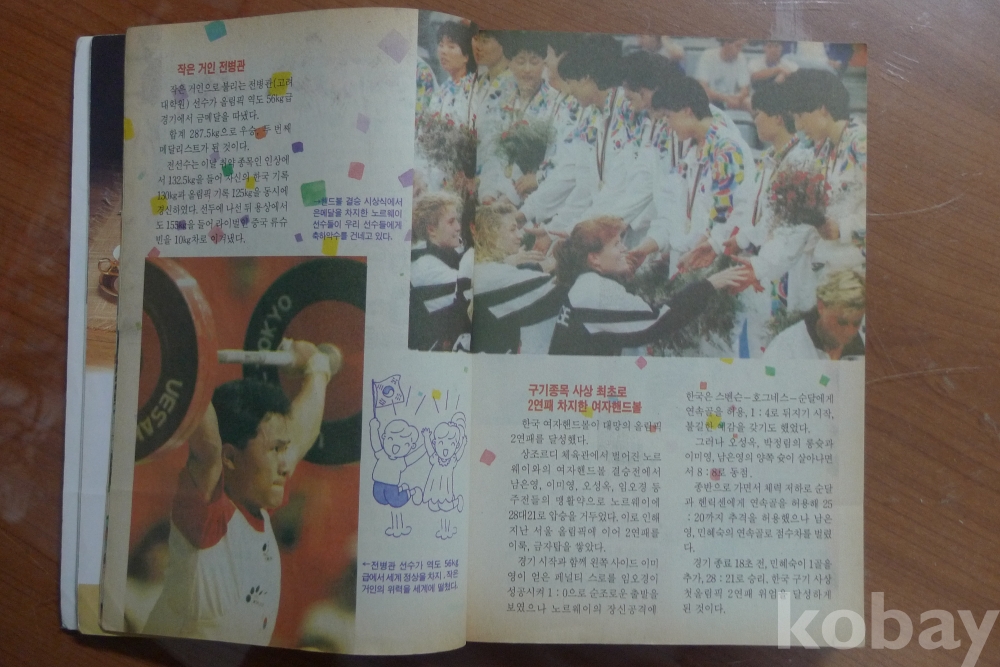 작은 거인 전병관
작은 거인으로 불리는 전병관(고려
대학원) 선수가 올림픽 역도 56kg급
경기에서 금메달을 따냈다.
합계 287.5kg으로 우승, 두 번째
메달리스트가 된 것이다.
전선수는 이날 취약 종목인 인상에
서 132.5kg을 들어 자신의 한국 기록
130kg과 올림픽 기록 125kg을 동시에
경신하였다. 선두에 나선 뒤 용상에서
도 155kg을 들어 라이벌인 중국 류슈
빈을 10kg차로 이기냈다.
→핸드볼 결승 시상식에서
은메달을 차지한 노르웨이
선수들이 우리 선수들에게
축하악수를 건네고 있다.
TOKYO
UESAKA
←전병관 선수가 역도 56kg
급에서 세계 정상을 차지, 작은
거인의 위력을 세계에 떨쳤다.
구기종목 사상 최초로
2연패 차지한 여자핸드볼
한국 여자핸드볼이 대망의 올림픽
2연패를 달성했다.
상조르디 체육관에서 벌어진 노르
웨이와의 여자핸드볼 결승전에서
남은영, 이미영, 오성옥, 임오경 등
주전들의 맹활약으로 노르웨이에
28대21로 압승을 거두었다. 이로 인해
지난 서울 올림픽에 이어 2연패를
이룩, 금자탑을 쌓았다.
경기 시작과 함께 왼쪽 사이드 이미
영이 얻은 페널티 스로를 임오경이
성공시켜 1 : 0으로 순조로운 출발을
보였으나 노르웨이의 장신공격에
한국은 스벤슨―호그네스―순달에게
연속골을 허용, 1 : 4로 뒤지기 시작,
불길한 예감을 갖기도 했었다.
그러나 오성옥, 박정림의 롱슛과
이미영, 남은영의 양쪽 슛이 살아나면
서 8 : 8로 동점.
종반으로 가면서 체력 저하로 순달
과 헨릭센에게 연속골을 허용해 25
: 20까지 추격을 허용했으나 남은
영, 민혜숙의 연속골로 점수차를 벌렸
다.
경기 종료 18초 전, 민혜숙이 1골을
추가, 28 : 21로 승리, 한국 구기 사상
첫올림픽 2연패 위업을 달성하게
된 것이다.
kobay